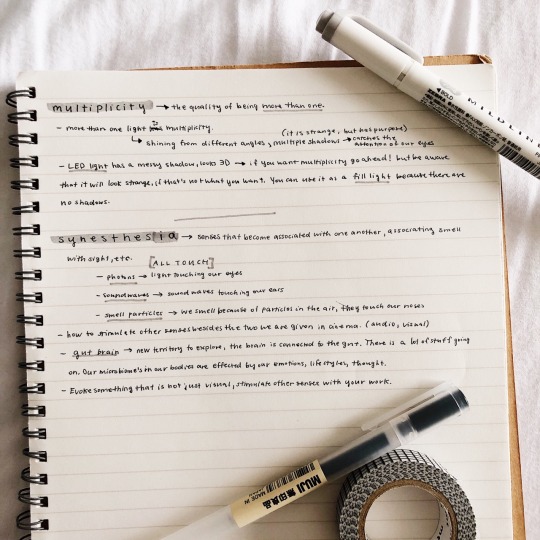 multiplicity → the quality of being more than one.
- more than one light is multiplicity.
(it is strange, but has purpose)
↳ shining from different angles, multiple shadows → catches the attention of our eyes
- LED light has a messy shadow, looks 3D → if you want multiplicity go ahead! but be aware
that it will look strange, if that's not what you want. You can use it as a fill light because there are
no shadows.
synesthesia → senses that become associated with one another, associating smell
with sight, etc. [ALL TOUCH]
- photons → light touching our eyes
- soundwaves → sound waves touching our ears
- smell particles → we smell because of particles in the air, they touch our noses
- how to stimulate other senses besides the two we are given in cinema. (audio, visual)
- gut brain → new territory to explore, the brain is connected to the gut. There is a lot of stuff going
on. Our microbiome's in our bodies are effected by our emotions, lifestyles, thought.
- Evoke something that is not just visual, stimulate other senses with your work.
BOLD
MUJI 無印良品
MADE IN